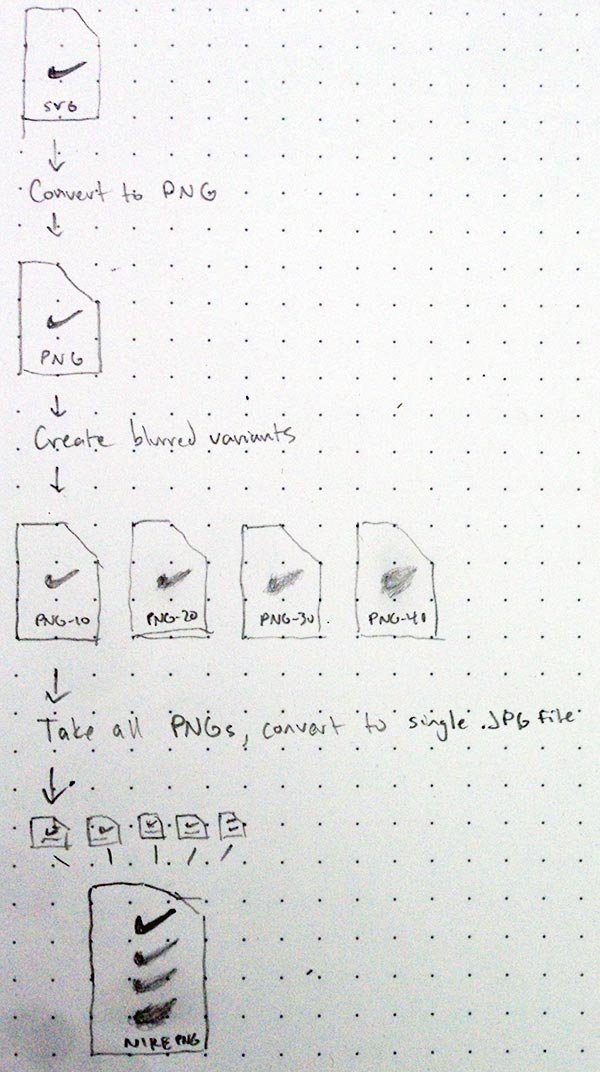 SVG
Convert to PNG
PNG
Create blurred variants
PNG-10 PNG-20 PNG-30 PNG-40
Take all PNGs, convert to single .JPG file
NIKE PNG